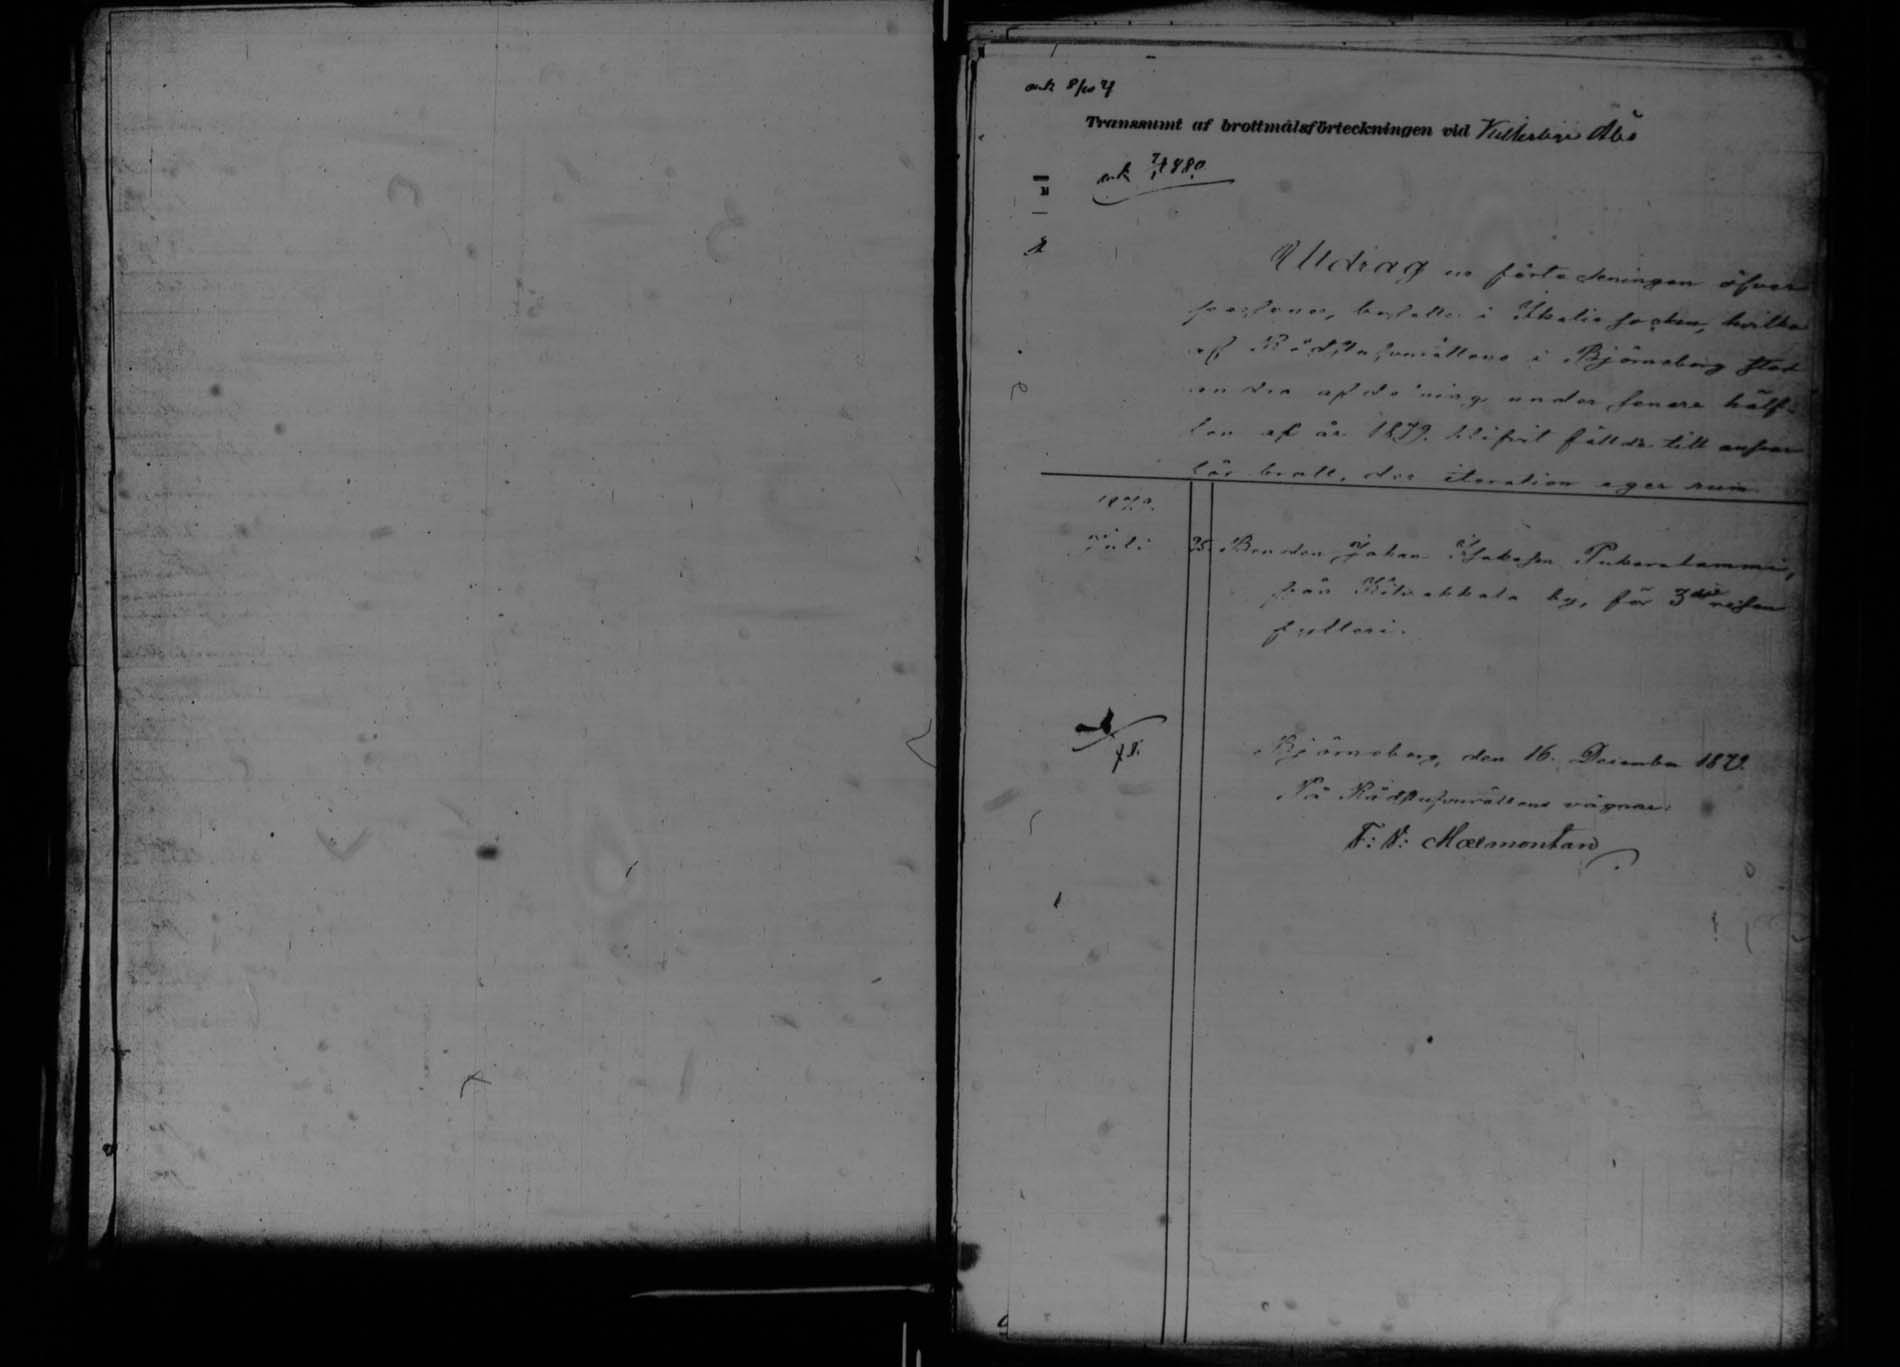 ank 8/10 7
Transsumt af brottmålsförteckningen vid Åbo
ank 7/1 880.
Utdrag ur förteckningen öfver
personer, bosatte i Ikalis socken, hvilka
af Rådstufvurättens i Björneborg stad
andra afdelning under senare hälf-
ten af år 1879. blifvit fällde till ansvar
för brott, der iteration eger rum.
1879.
Juli 25. Bonden Johan
från by, för 3dje resan
fylleri.
Björneborg, den 16. December 1879.
På Rådstufvurättens vägnar:
F: V: Malmontan